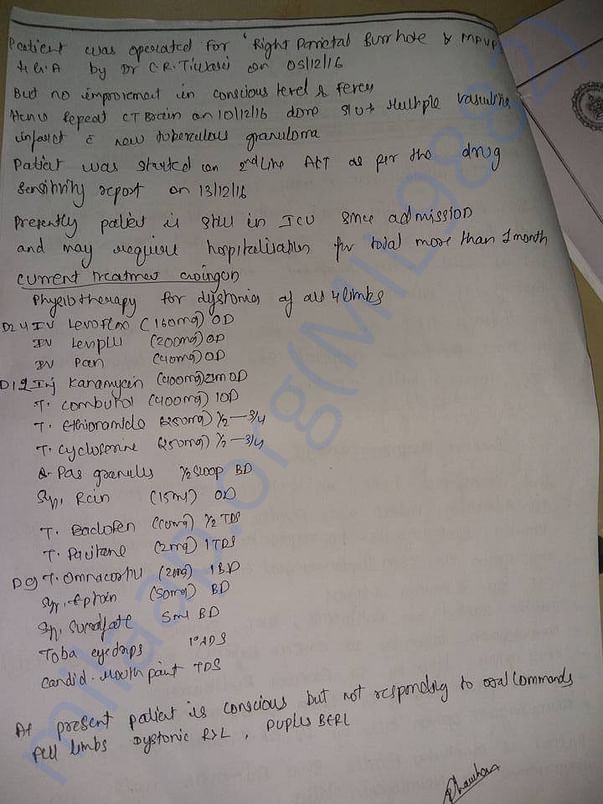 Patient was operated for 'Right Parietal Burrhole & MPVP
↓ G.A by Dr C.R. Tiwari on 05/12/16
But no improvement in conscious level & fever
Hence repeat CT Brain on 10/12/16 done s/o multiple vasculitic
infarct c new tuberculous granuloma
Patient was started on 2nd line AKT as per the drug
sensitivity report on 13/12/16
Presently patient is still in ICU since admission
and may require hospitalisation for total more than 1 month
current treatment ongoing
Physiotherapy for dystonia of all 4 limbs
D24 IV Levoflox (160mg) OD
IV Levipil (200mg) OD
IV Pan (40mg) OD
D12 Inj Kanamycin (400mg) IM OD
T. Combutol (400mg) 1OD
T. Ethionamide (250mg) 1/2—3/4
T. Cycloserine (250mg) 1/2—3/4
Pas granules 1/2 scoop BD
Syp. Rcin (15ml) OD
T. Baclofen (10mg) 1/2 TDS
T. Pacitane (2mg) 1TDS
D9 T. Omnacortil (2mg) 1BD
Syr. Eptoin (50mg) BD
Syp. Sucralfate 5ml BD
Toba eye drops
Candid. Mouth paint TDS
At present patient is conscious but not responding to oral commands
All limbs Dystonic R>L, Pupils BERL
milaap.org(MIL98882)